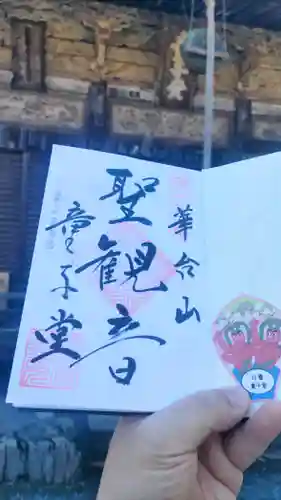 華台山
聖観音
童子堂